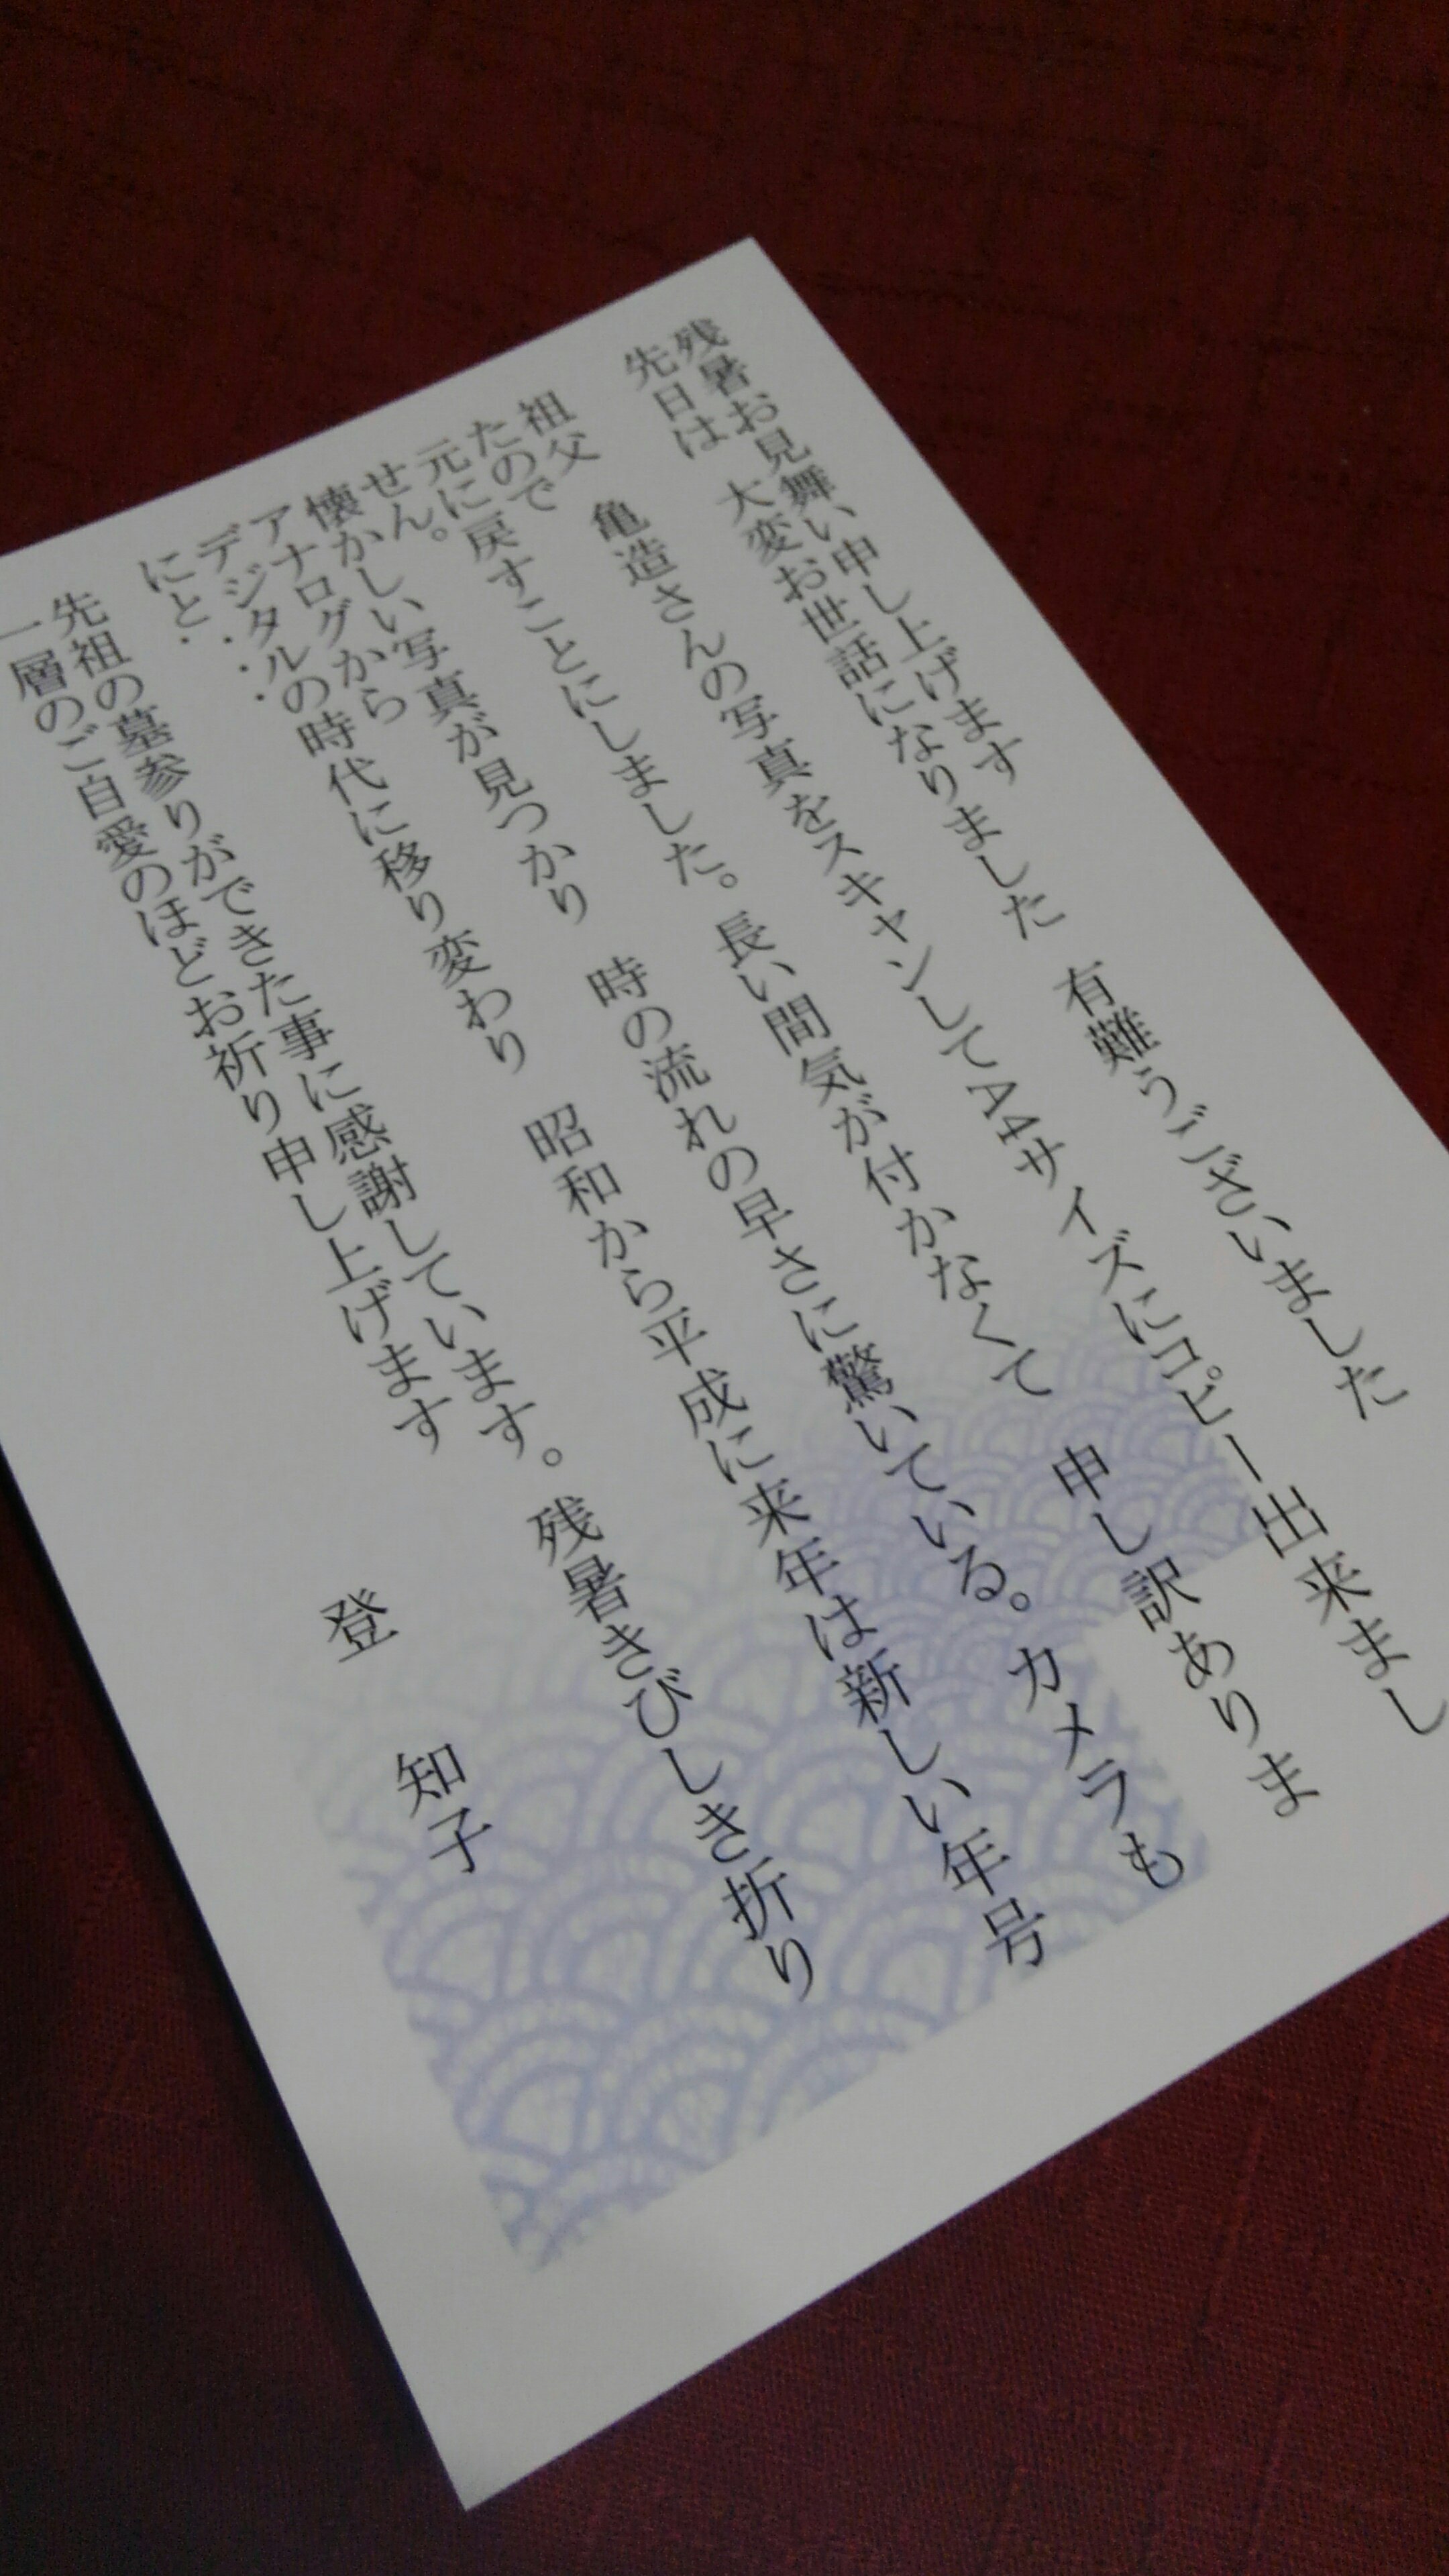 残暑お見舞い申し上げます
先日は 大変お世話になりました 有難うございました
祖父 亀造さんの写真をスキャンしてA4サイズにコピー出来まし
たので
元に戻すことにしました。長い間気が付かなくて 申し訳ありま
せん。
懐かしい写真が見つかり 時の流れの早さに驚いている。カメラも
アナログから
デジタルの時代に移り変わり 昭和から平成に来年は新しい年号
にと・・・・
先祖の墓参りができた事に感謝しています。残暑きびしき折り
一層のご自愛のほどお祈り申し上げます
登 知子